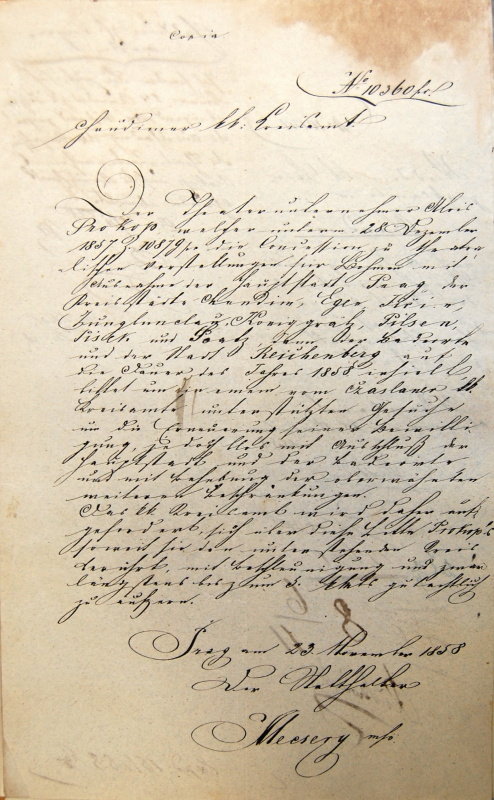 Copia
No 10360 pr.
Chrudimer kk: Kreisamt.
Der Theaterunternehmer Alois
Prokop welcher unterm 28. Dezember
1857 Z. 10879/pr die Concession zu theatra-
lischen Vorstellungen für Böhmen mit
Ausnahme der Hauptstadt Prag, der
Kreisstädte Chrudim, Eger, Jičin,
Jungbunzlau, Königgratz, Pilsen,
Pisek und Saatz, dann der Badeorte
und der Stadt Reichenberg auf
die Dauer des Jahres 1858 erhielt
bittet nun in einem vom Czaslauer kk.
Kreisamte unterstützten Gesuche
um die Erneuerung seiner Bewilli-
gung, jedoch blos mit Ausschluß der
Hauptstadt und der Badeorte
und mit Behebung der oberwähnten
weiteren Beschränkungen.
Das kk Kreisamt wird daher auf-
gefordert, sich über diese Bitte Prokops
soweit sie den unterstehenden Kreis
berührt, mit Beschleunigung und zwar
längstens bis zum 5. gutachtlich
zu äußern.
Prag am 23. November 1858
Der Statthalter
Mecsery mp.